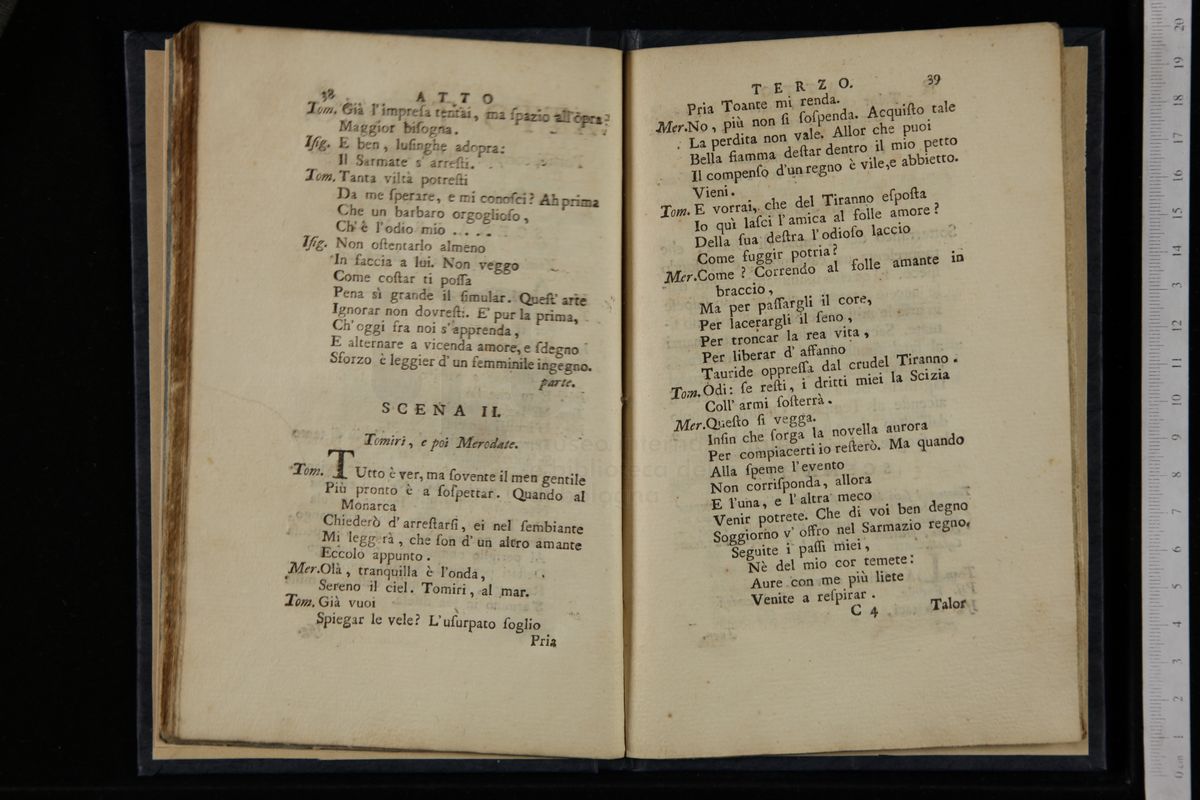 38 ATTO
Tom. Già l'impreſa tentai, ma ſpazio all'opra
Maggior biſogna.
Iſig. E ben, luſinghe adopra:
Il Sarmate s' arreſti.
Tom. Tanta viltà potreſti
Da me ſperare, e mi conoſci? Ah prima
Che un barbaro orgoglioſo,
Ch'è l'odio mio . . . .
Iſig. Non oſtentarlo almeno
In faccia a lui. Non veggo
Come coſtar ti poſſa
Pena sì grande il ſimular. Queſt' arte
Ignorar non dovreſti. E' pur la prima,
Ch'oggi fra noi s'apprenda,
E alternare a vicenda amore, e ſdegno
Sforzo è leggier d' un femminile ingegno.
parte.
SCENA II.
Tomiri, e poi Merodate.
Tom. TUtto è ver, ma ſovente il men gentile
Più pronto è a ſoſpettar. Quando al
Monarca
Chiederò d' arreſtarſi, ei nel ſembiante
Mi leggerà, che ſon d' un altro amante
Eccolo appunto.
Mer. Olà, tranquilla è l'onda,
Sereno il ciel. Tomiri, al mar.
Tom. Già vuoi
Spiegar le vele? L'uſurpato ſoglio
Pria
TERZO. 39
Pria Toante mi renda.
Mer. No, più non ſi ſoſpenda. Acquiſto tale
La perdita non vale. Allor che puoi
Bella fiamma deſtar dentro il mio petto
Il compenſo d'un regno è vile, e abbietto.
Vieni.
Tom. E vorrai, che del Tiranno eſpoſta
Io quì laſci l'amica al folle amore?
Della ſua deſtra l'odioſo laccio
Come fuggir potria?
Mer. Come? Correndo al folle amante in
braccio,
Ma per paſſargli il core,
Per lacerargli il ſeno,
Per troncar la rea vita,
Per liberar d' affanno
Tauride oppreſſa dal crudel Tiranno.
Tom. Odi: ſe reſti, i dritti miei la Scizia
Coll' armi ſoſterrà.
Mer. Queſto ſi vegga.
Inſin che ſorga la novella aurora
Per compiacerti io reſterò. Ma quando
Alla ſpeme l'evento
Non corriſponda, allora
E l'una, e l'altra meco
Venir potrete. Che di voi ben degno
Soggiorno v' offro nel Sarmazio regno.
Seguite i paſſi miei,
Nè del mio cor temete:
Aure con me più liete
Venite a reſpirar.
C 4 Talor